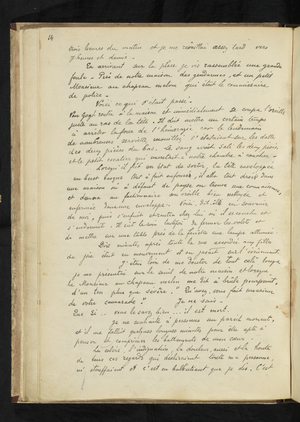 14
trois heures du matin et je me réveillai assez tard vers
7 heures et demie.
En arrivant sur la place je vis rassemblée une grande
foule. Près de notre maison des gendarmes, et un petit
Monsieur au chapeau melon qui était le commissaire
de police.
Voici ce qui s'était passé.
Van Gogh rentra à la maison et immédiatement se coupa l'oreille
juste au ras de la tête. Il dut mettre un certain temps
à arrêter la force de l'hémorragie, car le lendemain
de nombreuses serviettes mouillées s'étalaient sur les dalles
des deux pièces du bas. Le sang avait sali les deux pièces
et le petit escalier qui montait à notre chambre à coucher.
Lorsqu'il fut en état de sortir, la tête enveloppée
un béret basque tout à fait enfoncé, il alla tout droit dans
une maison où à défaut de payse on trouve une connaissance,
et donna au factionnaire son oreille bien nettoyée et
enfermée dans une enveloppe. Voici dit-il en souvenir
de moi, puis s'enfuit et rentra chez lui où il se coucha et
s'endormit. Il eut le soin toutefois de fermer les volets et
de mettre sur une table près de la fenêtre une lampe allumée.
Dix minutes après toute la rue accordée aux filles
de joie était en mouvement et on jasait sur l'événement.
J'étais loin de me douter de tout cela lorsque
je me présentai sur le seuil de notre maison et lorsque
le Monsieur au chapeau melon me dit à brûle pourpoint,
d'un ton plus que sévère. " Qu'avez vous fait Monsieur
de votre camarade " Je ne sais.
Que si .. vous le savez bien ... il est mort.
Je ne souhaite à personne un pareil moment,
et il me fallut quelques longues minutes pour être apte à
penser et comprimer les battements de mon cœur.
La colère, l'indignation, la douleur aussi et la honte
de tous ces regards qui déchiraient toute ma personne,
m'étouffaient et c'est en balbutiant que je dis. C'est